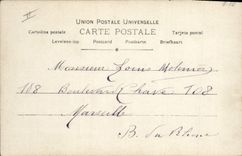 UNION POSTALE UNIVERSELLE
CARTE POSTALE
Cartolina postale
Tarjeta postal
Levelező-lap
Postcard
Postkarte
Briefkaart
Monsieur Louis Molinier
188 Boulevard Chave 108
Marseille
B. du Rhone